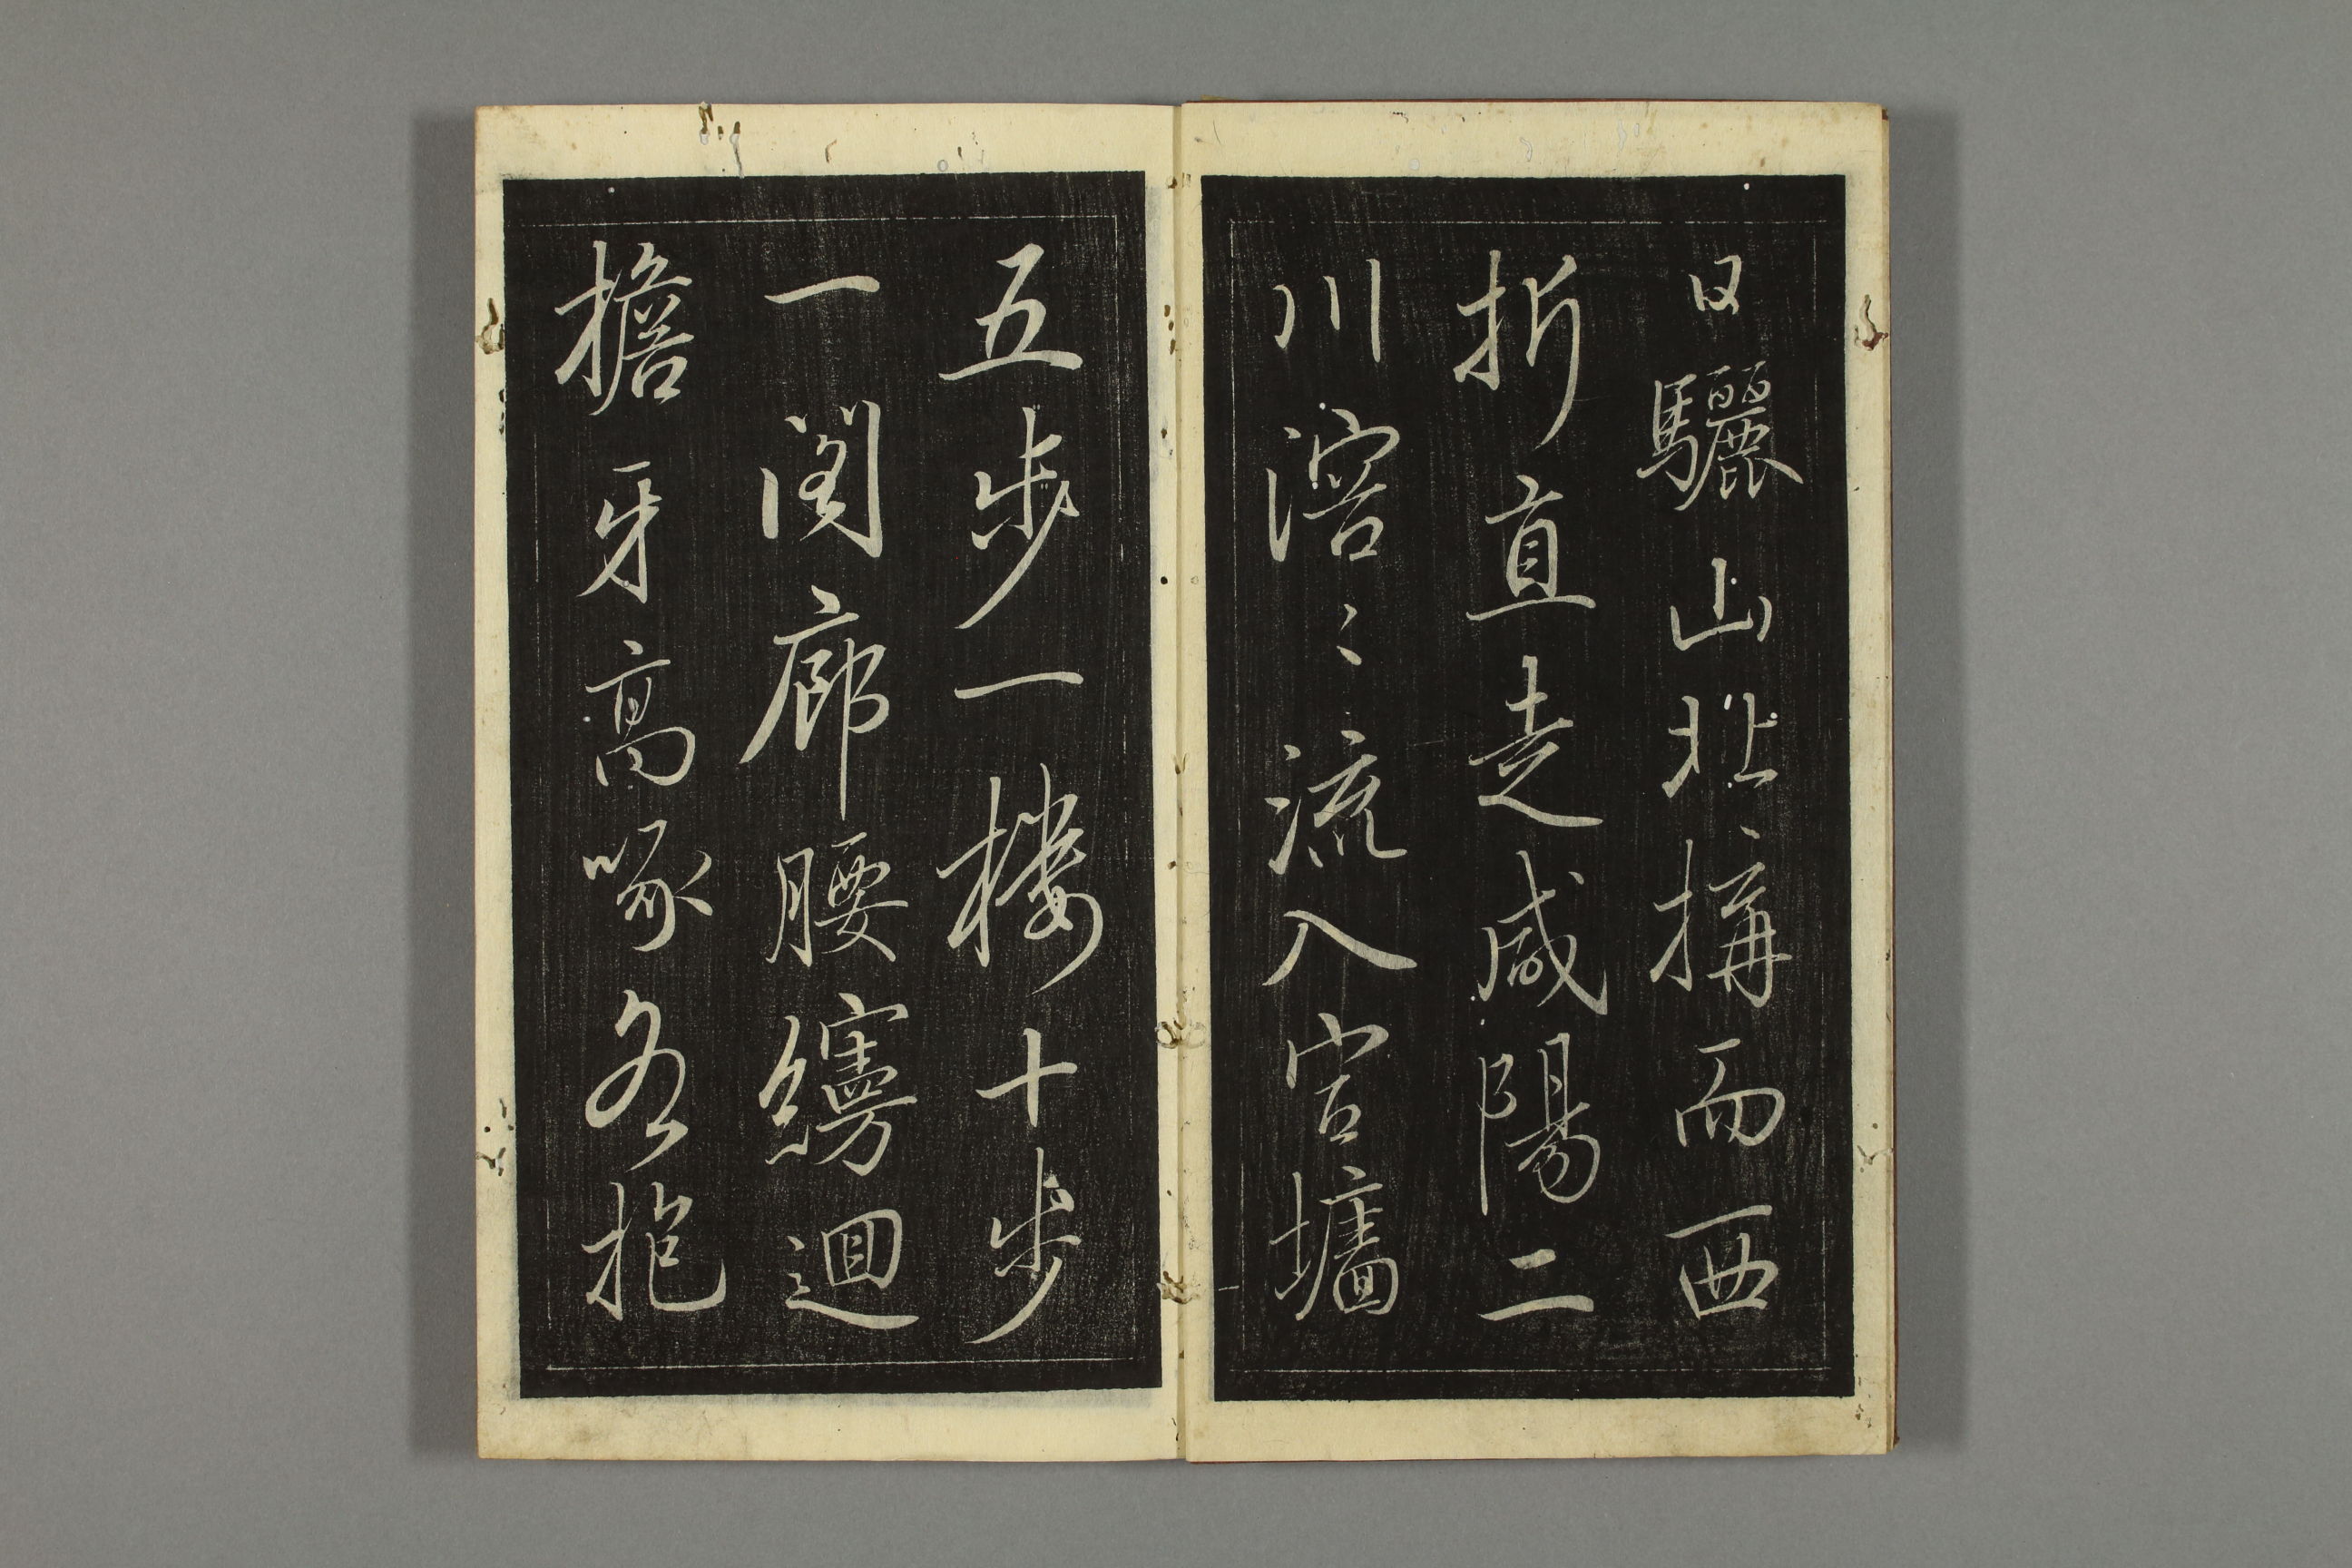 日驪山北搆而西
折直走咸陽二
川溶〻流入宮墻
五步一樓十步
一閣廊腰縵迴
檐牙高啄各抱